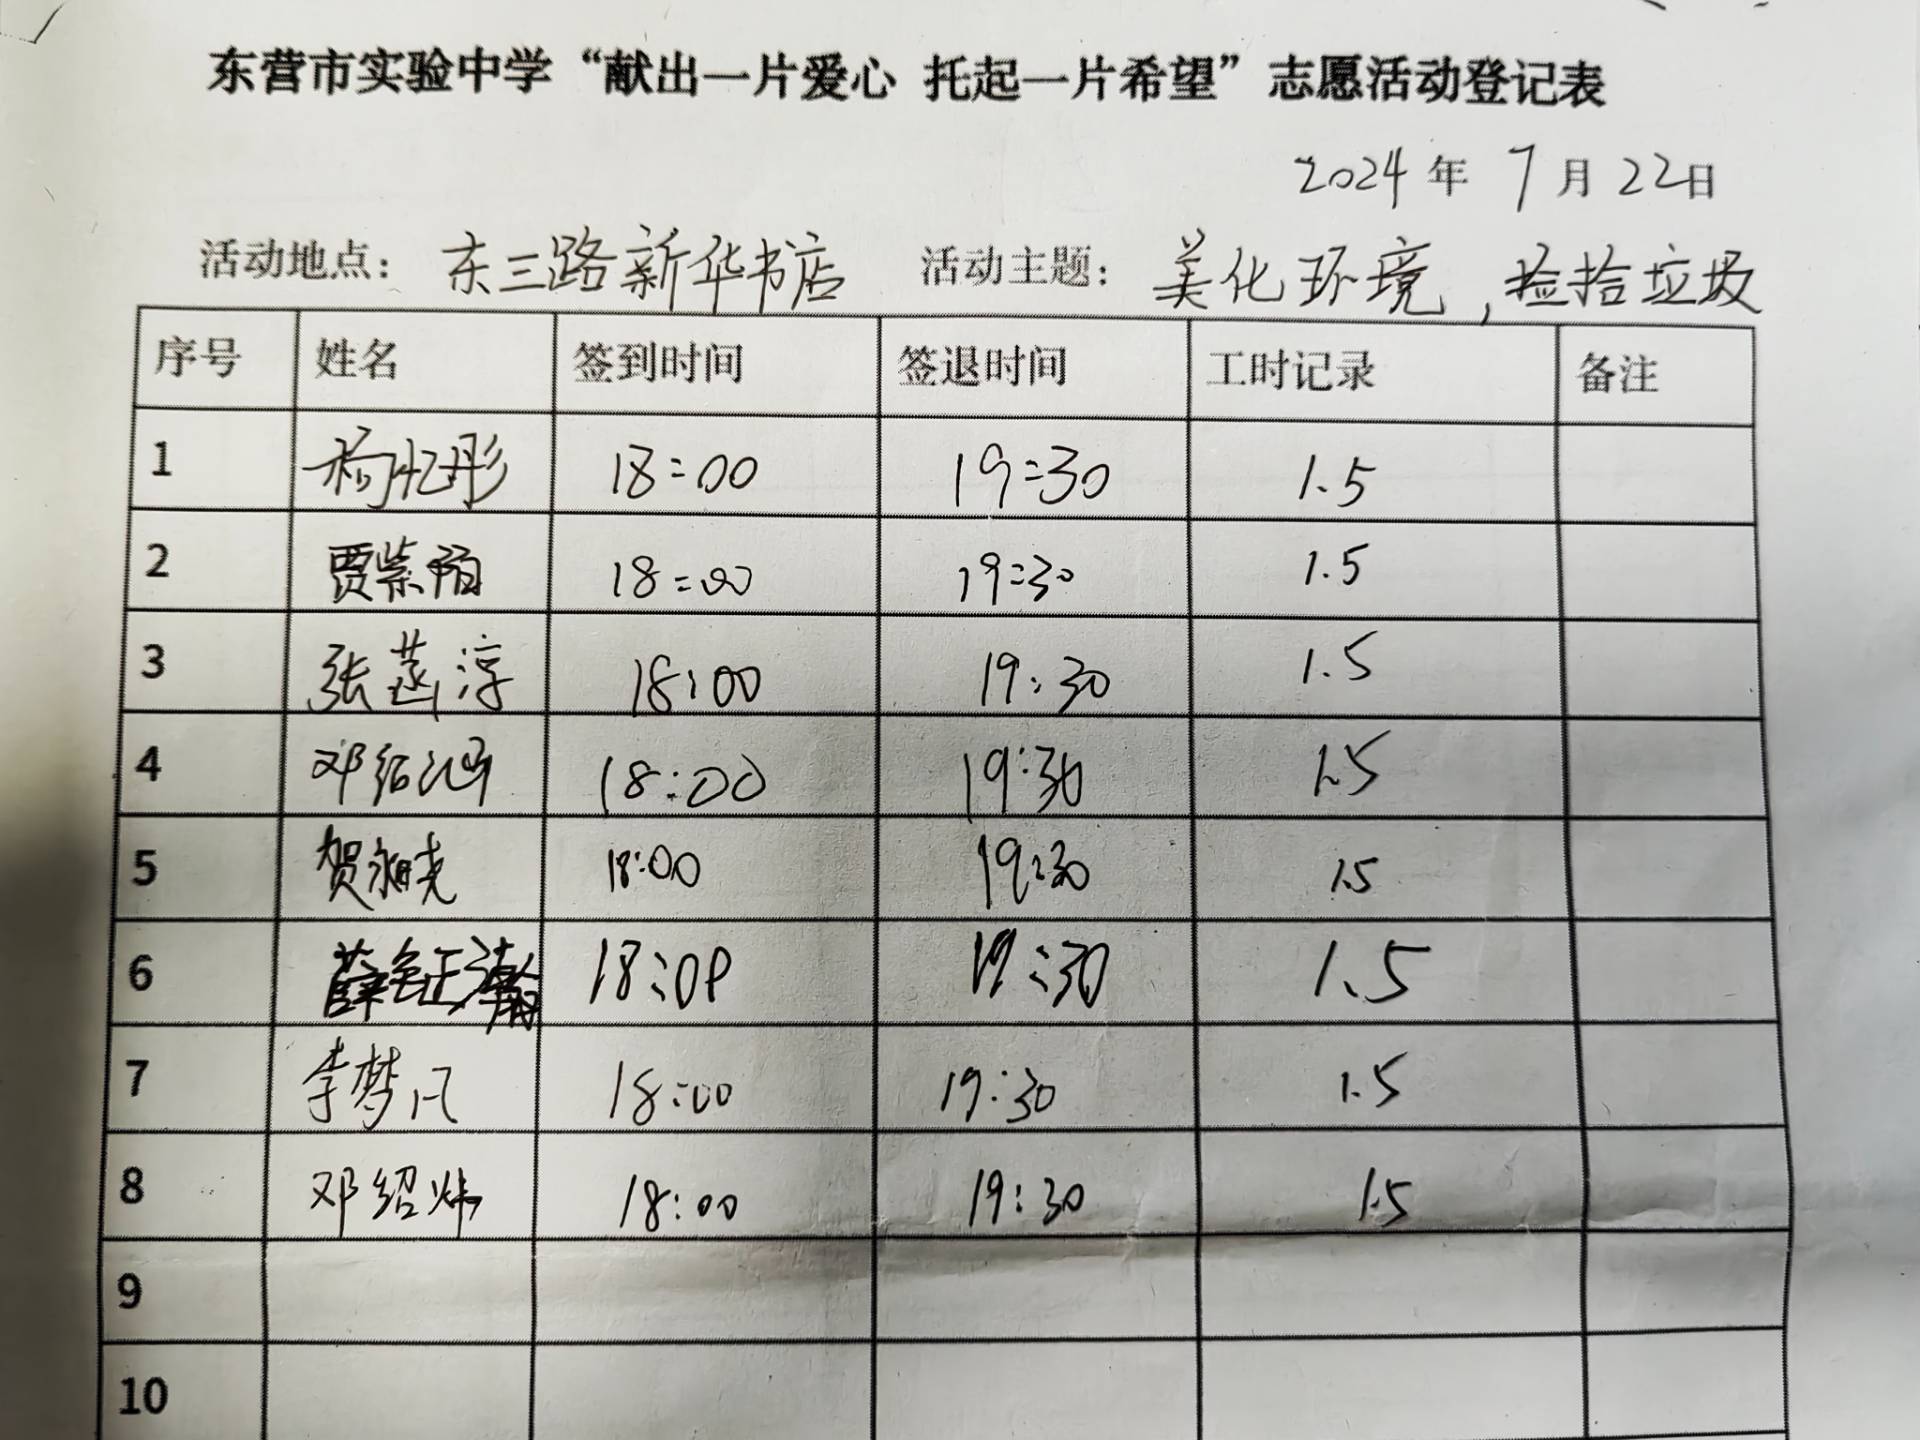 东营市实验中学“献出一片爱心 托起一片希望”志愿活动登记表
2024年 7月 22日
活动地点：东三路新华书店 活动主题：美化环境，捡拾垃圾
序号 姓名 签到时间 签退时间 工时记录 备注
1 杨忆彤 18:00 19:30 1.5
2 贾紫 18:00 19:30 1.5
3 张菡淳 18:00 19:30 1.5
4 邓绍 18:00 19:30 1.5
5 贺 18:00 19:30 1.5
6 薛钰瀚 18:00 19:30 1.5
7 李梦凡 18:00 19:30 1.5
8 邓绍炜 18:00 19:30 1.5
9
10